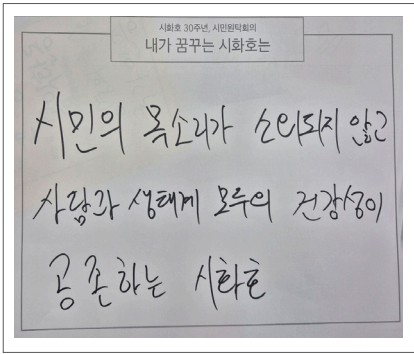 시화호 30주년, 시민원탁회의
내가 꿈꾸는 시화호는
시민의 목소리가 소외되지 않고
사람과 생태계 모두의 건강성이
공존하는 시화호